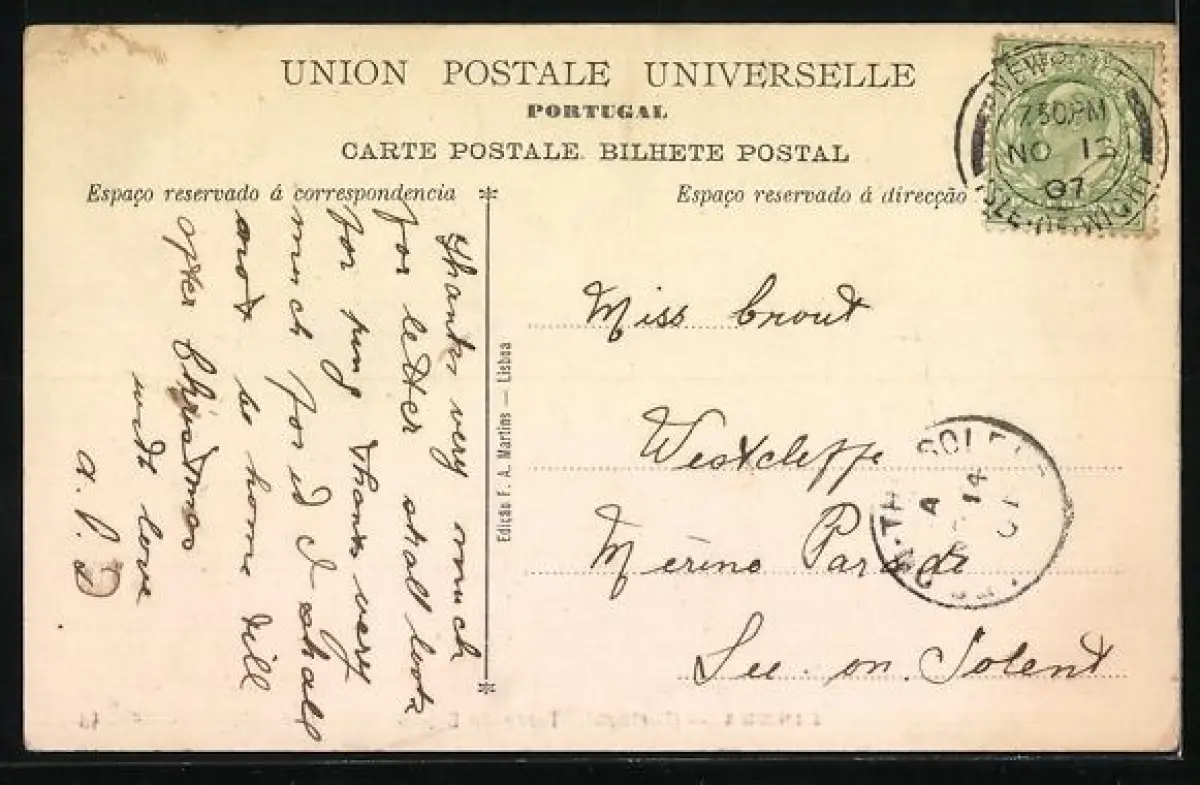 UNION POSTALE UNIVERSELLE
PORTUGAL
CARTE POSTALE. BILHETE POSTAL
Espaço reservado á correspondencia
Espaço reservado á direcção
NEWPORT
7.30PM
NO 13
07
ISLE OF WIGHT
Thanks very much
for letter shall look
for ring thanks very
much for it I shall
not be home till
after Christmas
with love
a. P. D
Edição F. A. Martins — Lisboa
Miss Crout
Westcliffe
Merino Parade
Lee. on. Solent
A
14
07